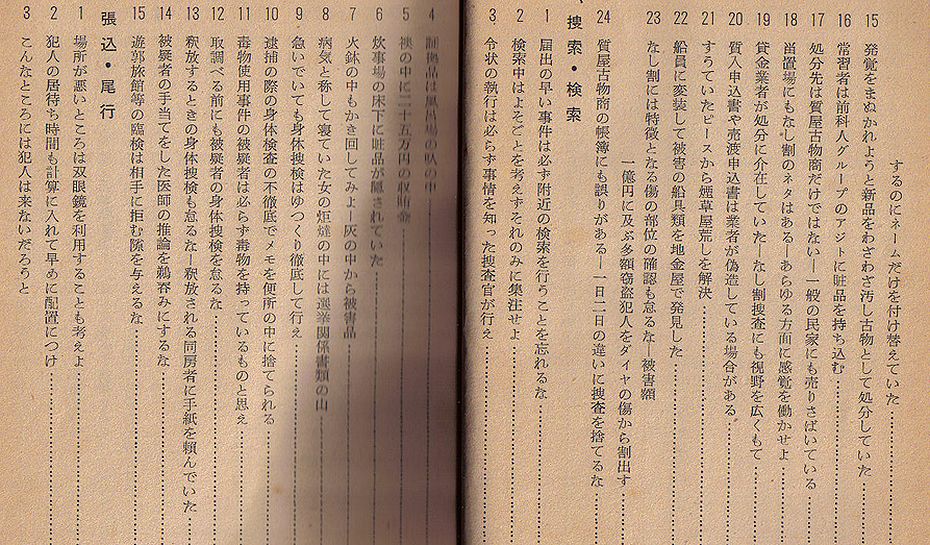 するのにネームだけを付け替えていた
15 発覚をまぬかれようと新品をわざわざ汚し古物として処分していた
16 常習者は前科人グループのアジトに賍品を持ち込む
17 処分先は質屋古物商だけではない―一般の民家にも売りさばいている
18 留置場にもなし割のネタはある―あらゆる方面に感覚を働かせよ
19 貸金業者が処分に介在していた―なし割捜査にも視野を広くもて
20 質入申込書や売渡申込書は業者が偽造している場合がある
21 すうていたピースから煙草屋荒しを解決
22 船員に変装して被害の船具類を地金屋で発見した
23 なし割には特徴となる傷の部位の確認も怠るな―被害額
一億円に及ぶ多額窃盗犯人をダイヤの傷から割出す
24 質屋古物商の帳簿にも誤りがある―一日二日の違いに捜査を捨てるな
、捜索・検索
1 届出の早い事件は必ず附近の検索を行うことを忘れるな
2 検索中はよそごとを考えずそれのみに集注せよ
3 令状の執行は必らず事情を知った捜査官が行え
4 証拠品は風呂場の
5 襖の中に二十五万円の収賄金
6 炊事場の床下に賍品が隠されていた
7 火鉢の中もかき回してみよ―灰の中から被害品
8 病気と称して寝ていた女の炬燵の中には選挙関係書類の山
9 急いでいても身体捜検はゆつくり徹底して行え
10 逮捕の際の身体検査の不徹底でメモを便所の中に捨てられる
11 毒物使用事件の被疑者は必らず毒物を持っているものと思え
12 取調べる前にも被疑者の身体捜検を怠るな
13 釈放するときの身体捜検も怠るな―釈放される同房者に手紙を頼んでいた
14 被疑者の手当てをした医師の推論を鵜呑みにするな
15 遊郭旅館等の臨検は相手に拒む隙を与えるな
張込・尾行
1 場所が悪いところは双眼鏡を利用することも考えよ
2 犯人の居待ち時間も計算に入れて早めに配置につけ
3 こんなところには犯人は来ないだろうと